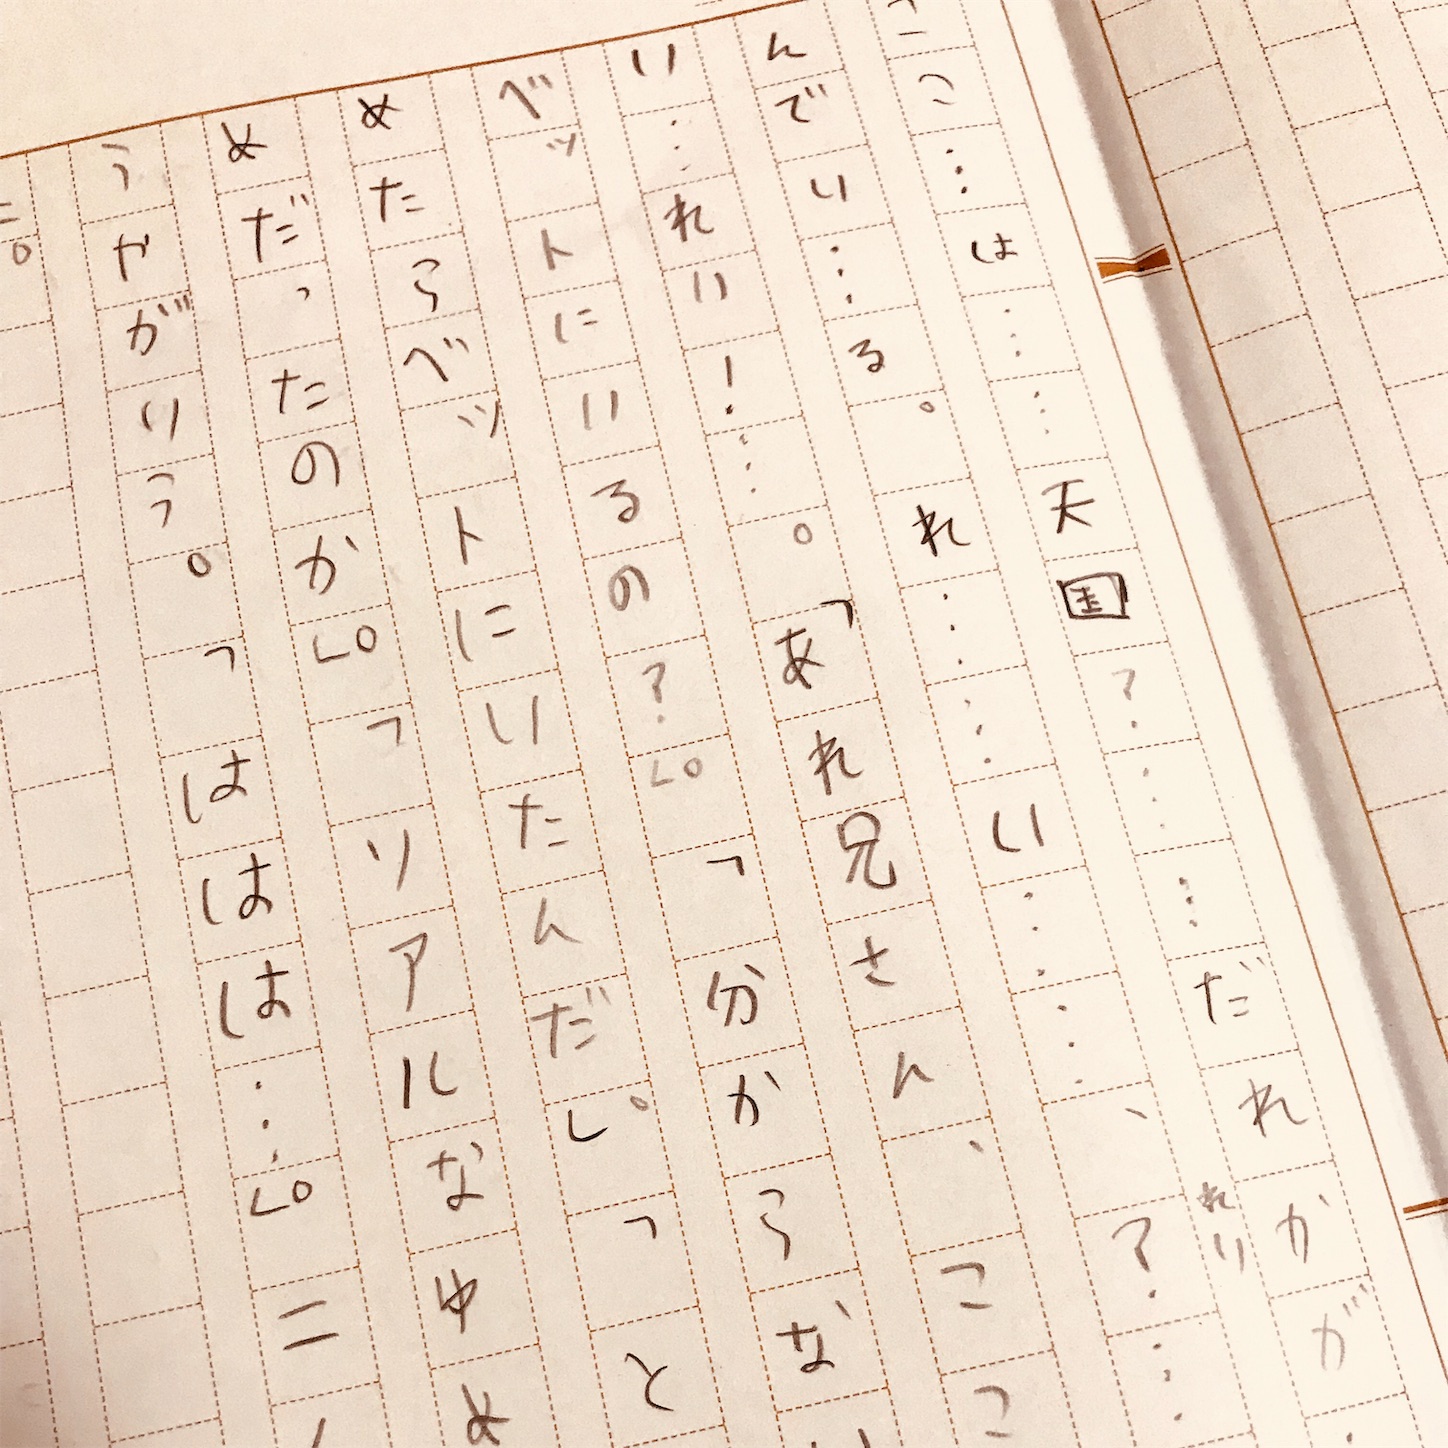 ここ…は……天国?……だれかが
んでい…る。れ……い……、?…
れい
い…れい!…。「あれ兄さん、ここ
べットにいるの?」。「分からない
めたらべットにいたんだ」。「と
めだったのか」。「リアルなゆめ
うかがりう。「ははは…」。ニ